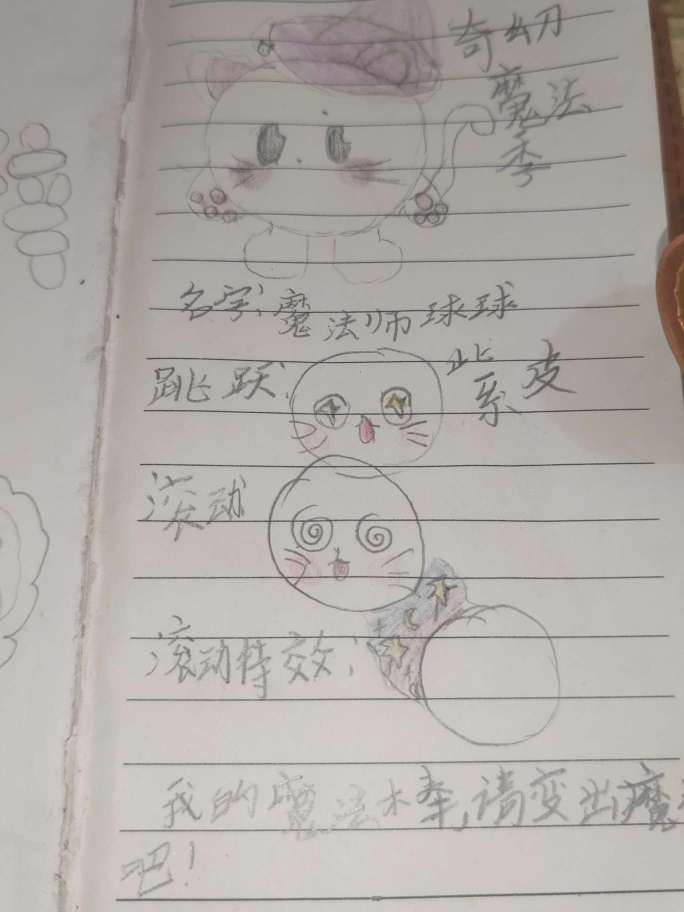 奇幻
魔法
季
名字：魔法师球球
跳跃：
紫皮
滚动
滚动特效：
我的魔法棒，请变出魔
吧！